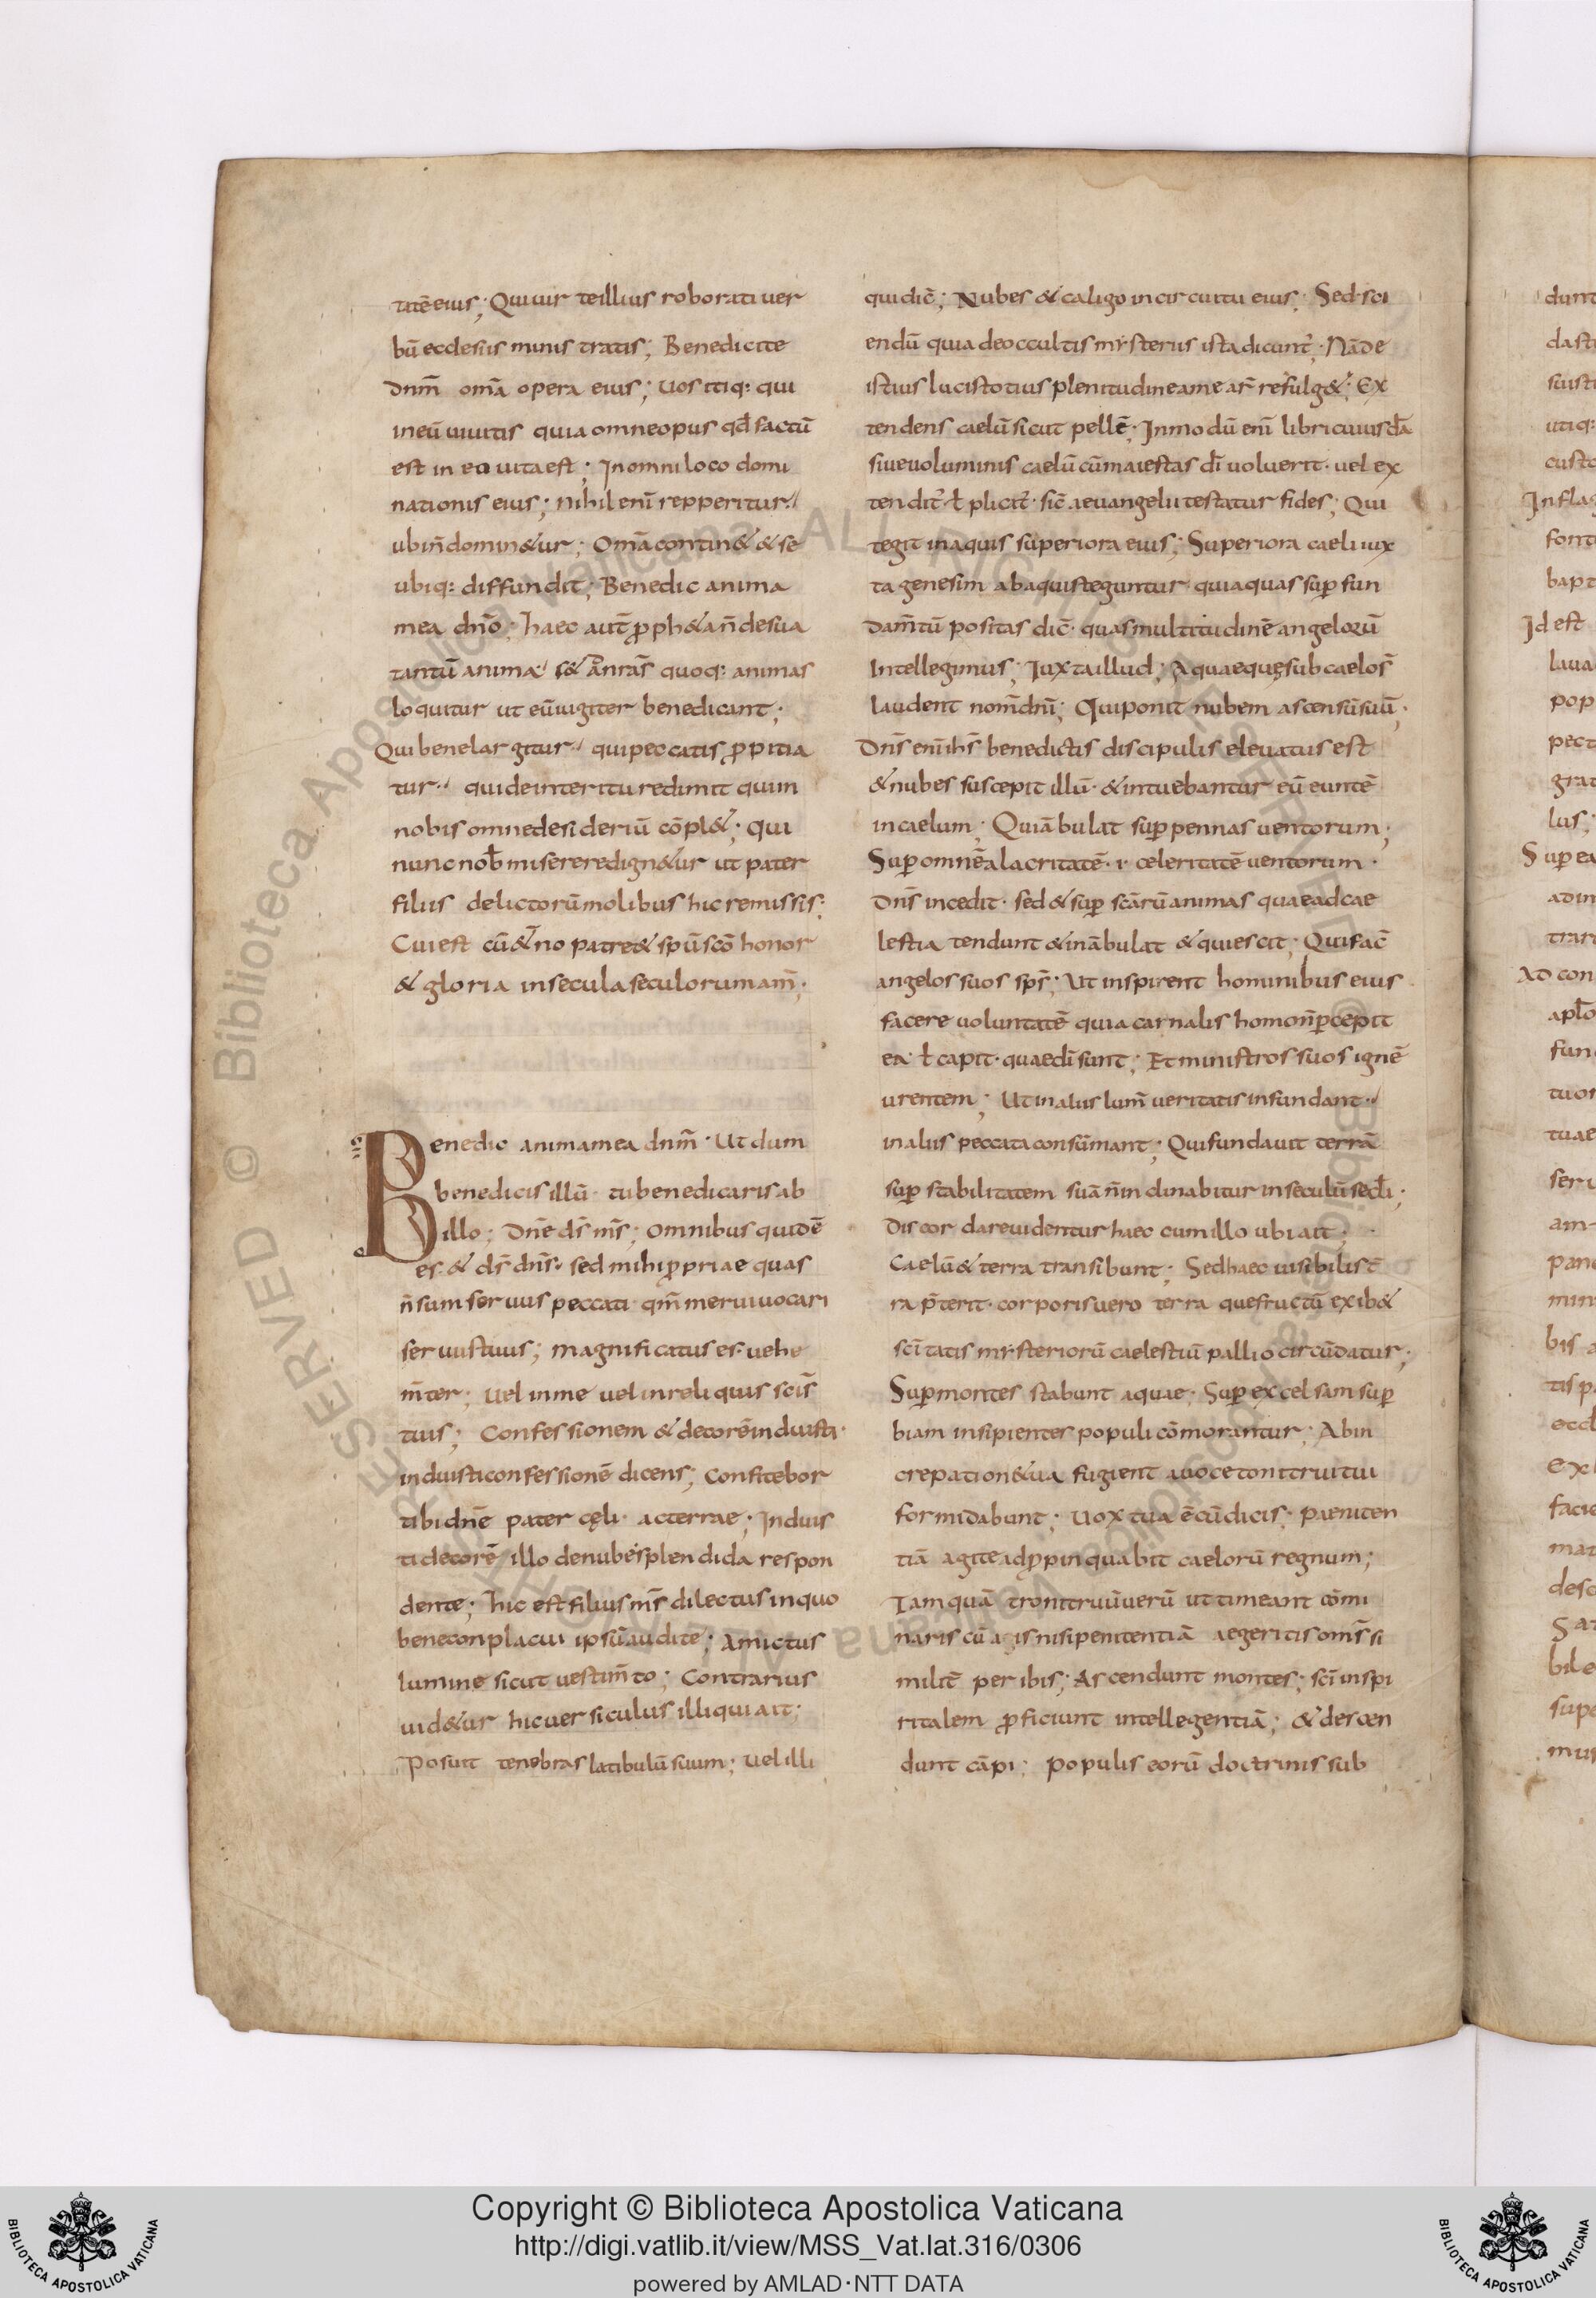 tatē eius; Qui uirtute illius roborati uer
bū ecclesiis ministratis; Benedicite
dnm̄ omā opera eius; Uos itiq: qui
in eū uiuitis quia omne opus qd̄ factū
est in eo uita est; In omni loco domi
nationis eius; nihil eni repperitur
ubi n̄ domin&ur; Omā contin& & se
ubiq: diffundit; Benedic anima
mea dno; haec aut̄ ꝓph&a n̄ de sua
tantū anima s& quoq: animas
loquitur ut eū iugiter benedicant;
Qui bene largitur quipeccatis ꝓpitia
tur qui de interitu redimit qui in
nobis omne desideriū cōpl&; qui
nunc nob̄ misereredign&ur ut pater
filiis delictorū molibus hic remissis:
Cui est cū &no patre & spū scō honor
& gloria in secula seculorum am̄;
Benedic anima mea dnm̄. Ut dum
benedicis illū tu benedicaris ab
illo; Dnē ds̄ ms̄; omnibus quidē
es & ds̄ dns̄. sed mihi ꝓpriae quas
n̄ sum seruus peccati qm̄ merui uocari
seruus tuus; magnificatus es uehe
m̄ter; Uel in me uel in reliquis scis̄
tuis; Confessionem & decorē induisti.
induisti confessionē dicens; Confitebor
tibi dnē pater cęli. ac terrae; Induis
ti decorē illo de nube splendida respon
dente; hic est filius ms̄ dilectus in quo
bene conplacui ipsū audite; Amictus
lumine sicut uestim̄to; Contrarius
uid&ur hic uersiculus illi qui ait;
Posuit tenebras latibulū suum; Uel illi
qui dic̄; Nubes & caligo in circuitu eius; Sed sci
endū quia de occultis mẏsteriis ista dicunt̄. Nā de
istius lucis totius plenitudine ame ar̄ refulg&; Ex
tendens caelū sicut pellē; In modū eni libri cuiusdā
siue uoluminis caelū cū maiestas dī uoluerit. uel ex
tendit̄ ł plicit̄. sic̄ aeuangelii testatur fides; Qui
tegit in aquis superiora eius; Superiora caeli iux
ta genesim ab aquis teguntur quia quas suꝑ fun
dam̄tū positas dic̄. quas multitudinē angelorū
Intellegimus; Iuxta illud; Aquae quę sub caelos
laudent nom̄ dni; Qui ponit nubem ascensū suū.
Dns̄ eni ihs̄ benedictis discipulis eleuatus est
& nubes suscepit illū. & intuebantur eū euntē
in caelum; Qui ābulat suꝑ pennas uentorum;
Suꝑ omnē alacritatē. i. celeritatē uentorum.
Dns̄ incedit. sed & suꝑ scārū animas quae ad cae
lestia tendunt & inābulat & quiescit; Qui fac̄
angelos suos sps̄; Ut inspirent hominibus eius
facere uoluntatē quia carnalis homo n̄ ꝑcepit
ea. ł capit. quae dī sunt; Et ministros suos ignē
urentem; Ut in aliis lum̄ ueritatis infundant
in aliis peccata consūmant; Qui fundauit terrā
suꝑ stabilitatem suā n̄ inclinabitur in seculū secłi;
Discordare uidentur haec cum illo ubi ait;
Caelū & terra transibunt; Sed haec uisibilis t̄
ra p̄terit. corporis uero terra que fructū exib&
sci tatis mẏsteriorū caelestiū pallio circūdatur;
Suꝑ montes stabunt aquae. Suꝑ excelsam suꝑ
biam insipientes populi cōmorantur; Ab in
crepation& ua fugient a uoce tonitrui tui
formidabunt; Uox tua ē cū dicis; paeniten
tiā agite adꝓpinquabit caelorū regnum;
Tamquā tronitruū uerū ut timeant cōmi
naris cū agis nisi penitentiā aegeritis oms̄ si
milit̄ peribis; Ascendunt montes; sci in spi
ritalem ꝓficiunt intellegentiā; & descen
dunt cāpi; Populis eorū doctrinis sub
Copyright © Biblioteca Apostolica Vaticana
http://digi.vatlib.it/view/MSS_Vat.lat.316/0306
powered by AMLAD·NTT DATA